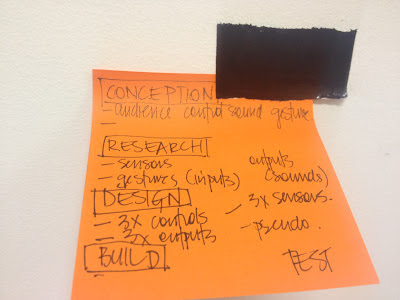 CONCEPTION
- audience control sound gesture
-
RESEARCH
- sensors outputs
- gestures (inputs) (sounds)
DESIGN - 3x sensors.
- 3x controls
- 3x outputs - pseudo.
BUILD TEST
-